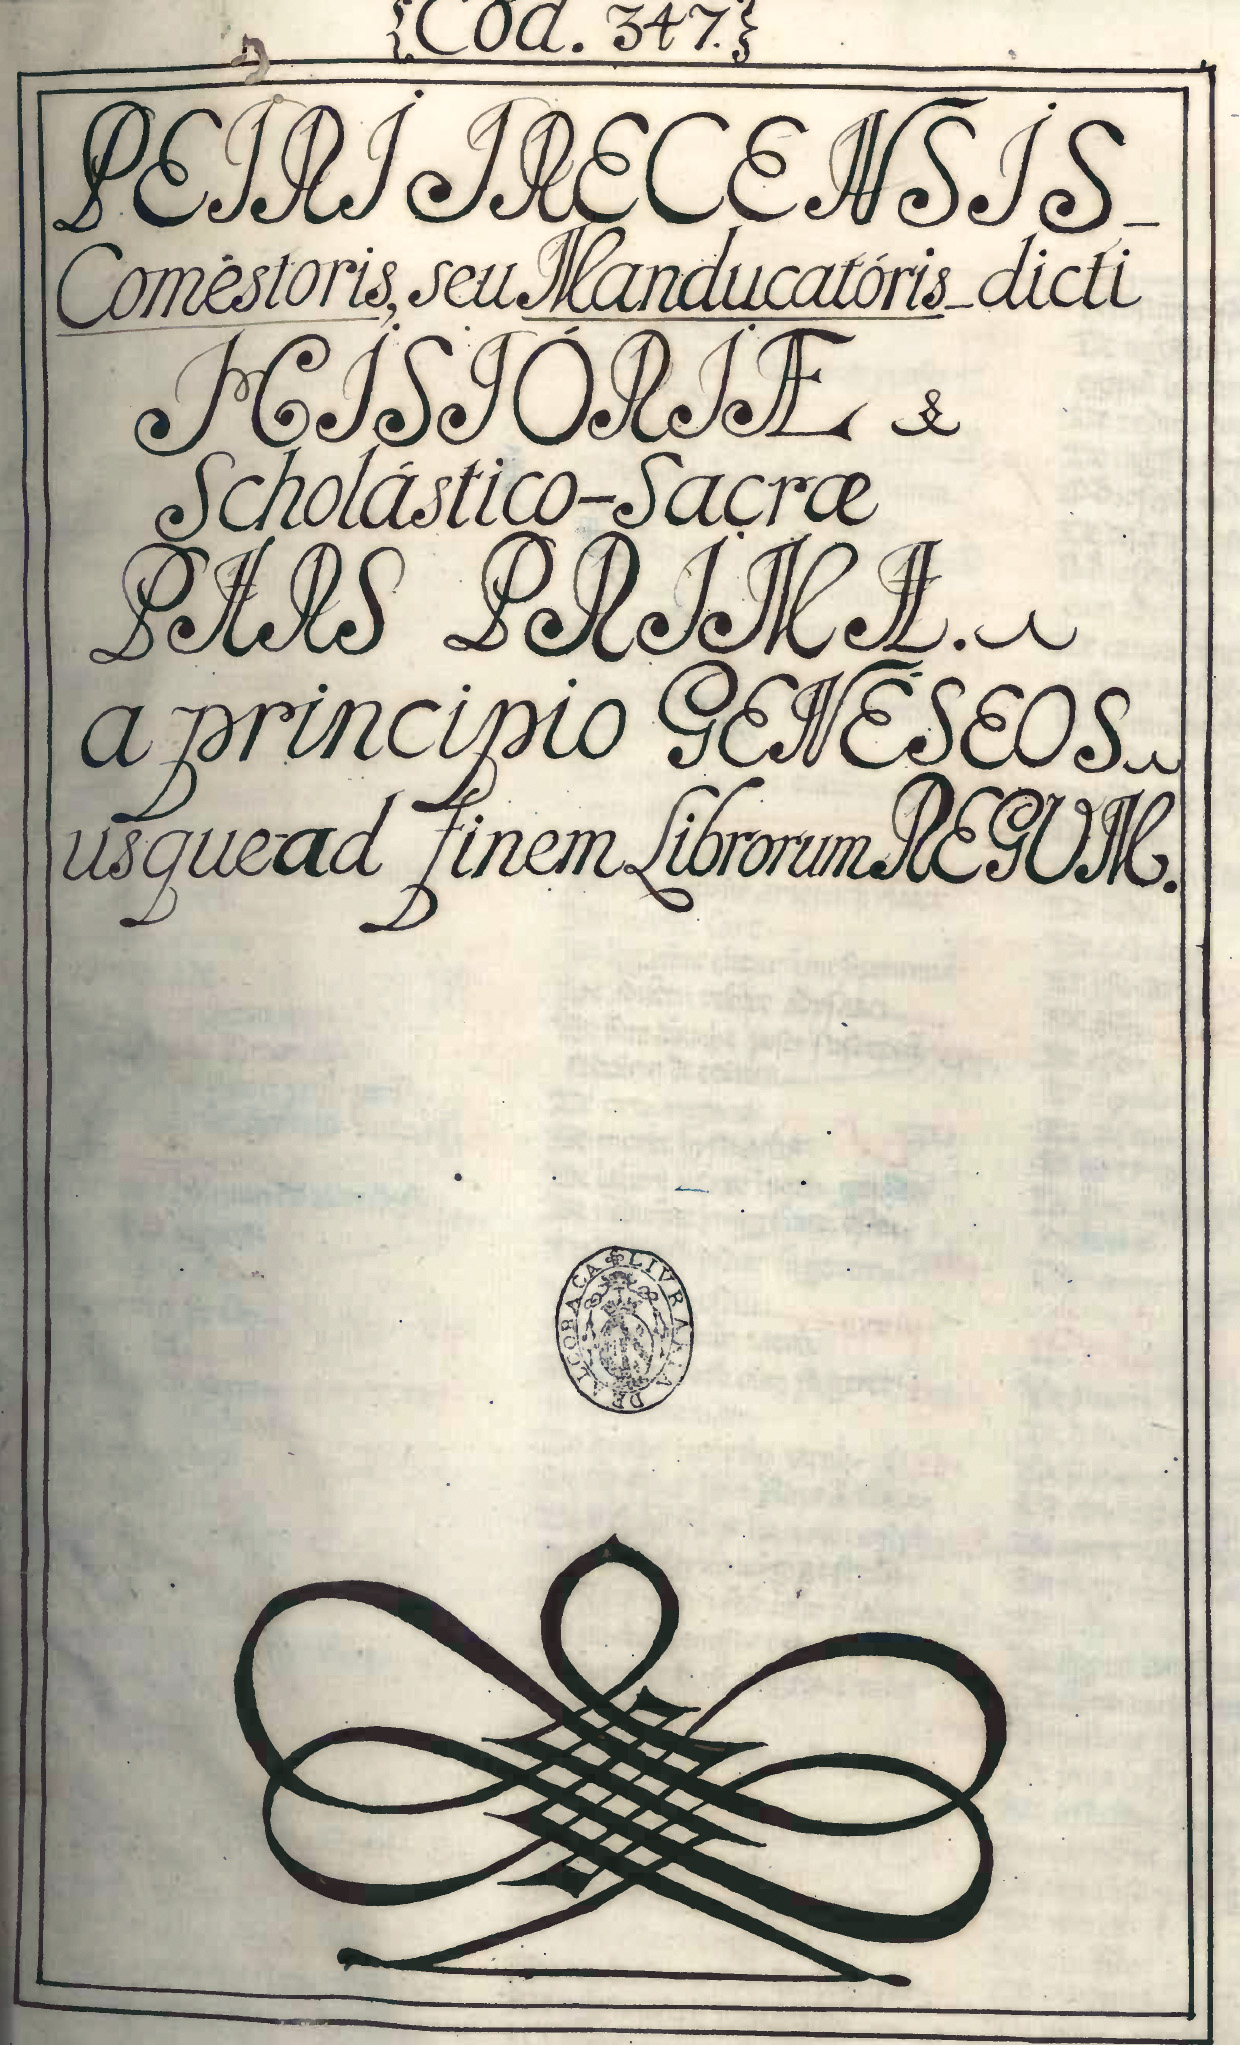 {Cod. 347.}
PETRI TRECENSIS
Coméstoris, seu Manducatóris dicti
HISTÓRIÆ &
Scholástico-Sacræ
PARS PRIMA.
a principio GENÉSEOS
usque ad finem Librorum REGUM.
LIVRARIA DE ALCOBACA